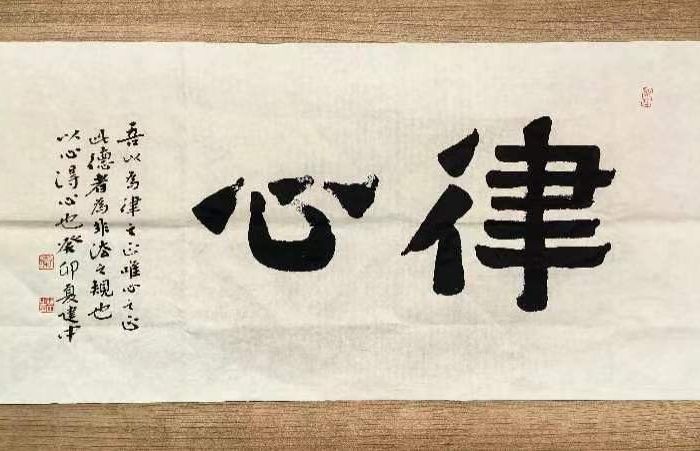 律心
吾以为律之正唯心之正
此德者为非法之规也
以心得心也癸卯夏建中